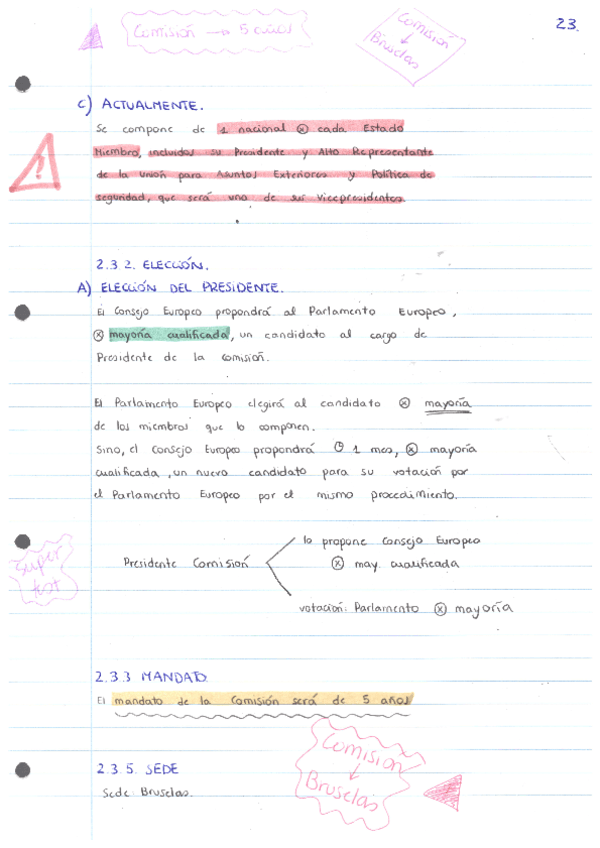 Comisión → 5 años
Comisión
↓
Bruselas
23.
C) ACTUALMENTE.
Se compone de 1 nacional ⊗ cada Estado
Miembro, incluidos su Presidente y Alto Representante
de la Unión para Asuntos Exteriores y Política de
seguridad, que será uno de sus vicepresidentes.
2.3.2. ELECCIÓN.
A) ELECCIÓN DEL PRESIDENTE.
El Consejo Europeo propondrá al Parlamento Europeo,
⊗ mayoría cualificada, un candidato al cargo de
Presidente de la comisión.
El Parlamento Europeo elegirá al candidato ⊗ mayoría
de los miembros que lo componen.
Sino, el Consejo Europeo propondrá 1 mes, ⊗ mayoría
cualificada, un nuevo candidato para su votación por
el Parlamento Europeo por el mismo procedimiento.
lo propone Consejo Europeo
Presidente Comisión
⊗ may. cualificada
votación: Parlamento ⊗ mayoría
super
test
2.3.3 MANDATO
El mandato de la Comisión será de 5 años
2.3.5. SEDE
Sede Bruselas.
Comisión
↓
Bruselas